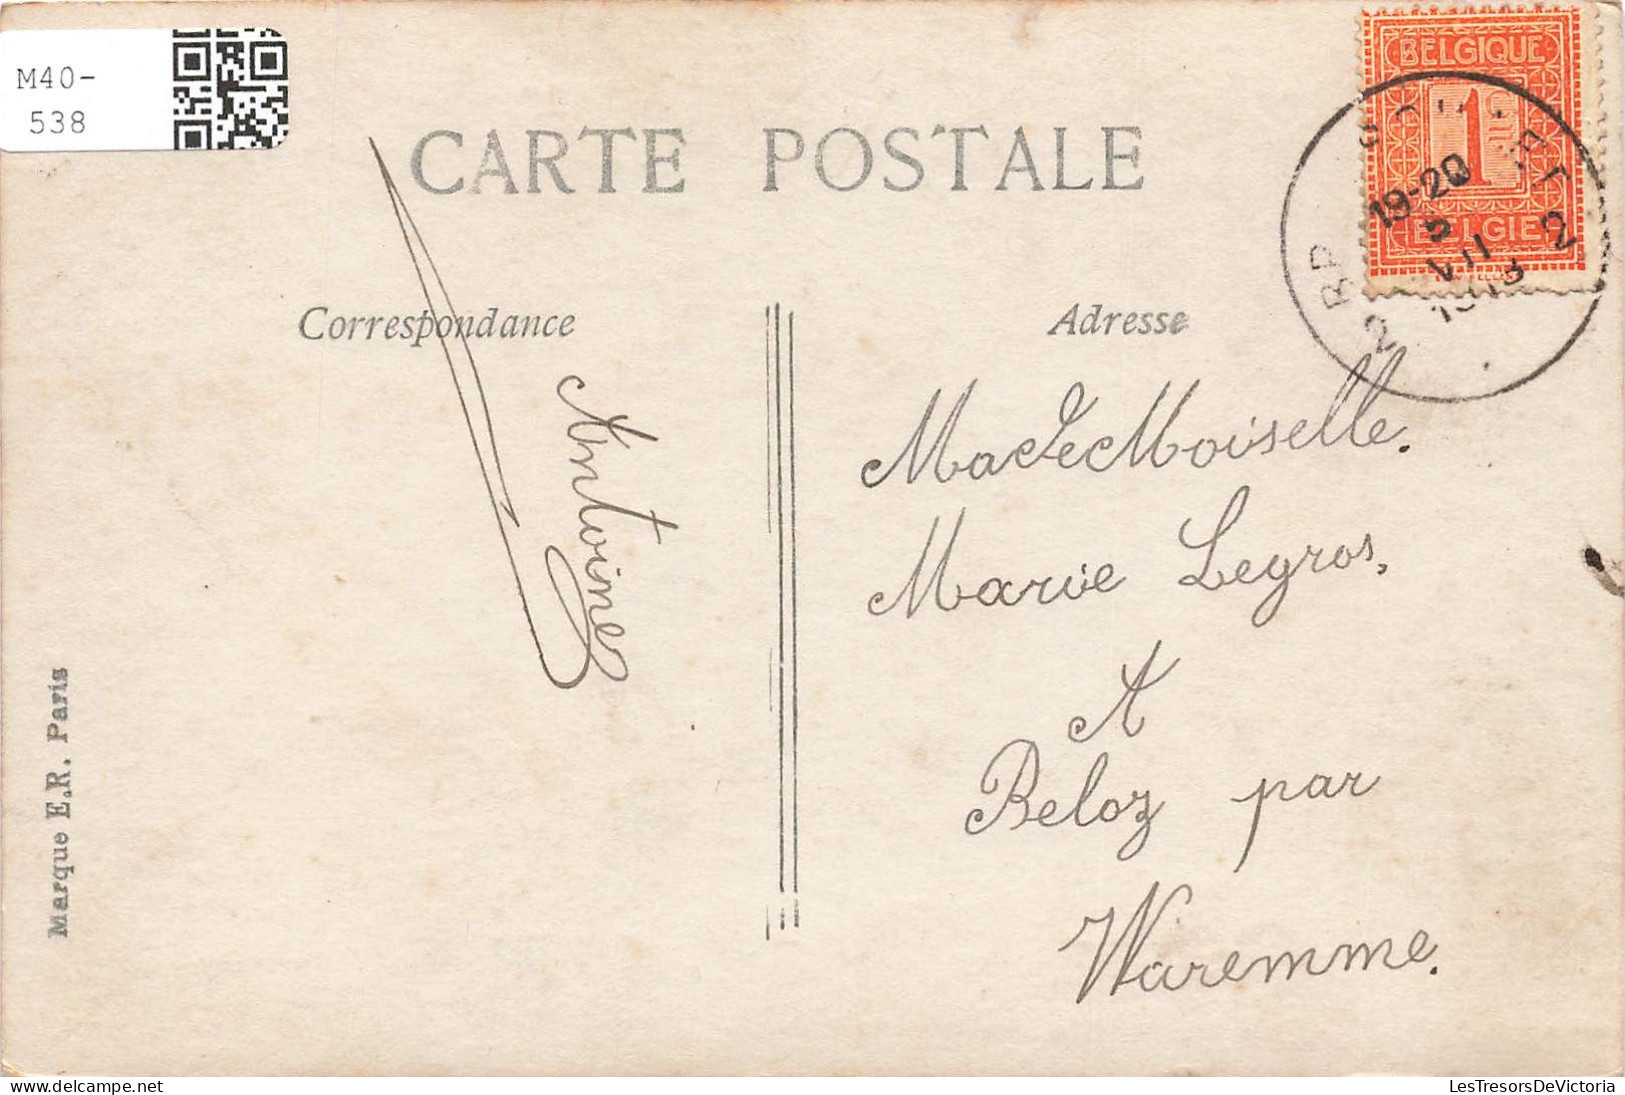 M40-
538
CARTE POSTALE
BELGIQUE
1
BELGIE
19-20
5
VII
Correspondance
Adresse
Antoine
MadeMoiselle.
Marie Legros,
A
Beloz par
Waremme.
Marque E.R. Paris
LesTresorsDeVictoria